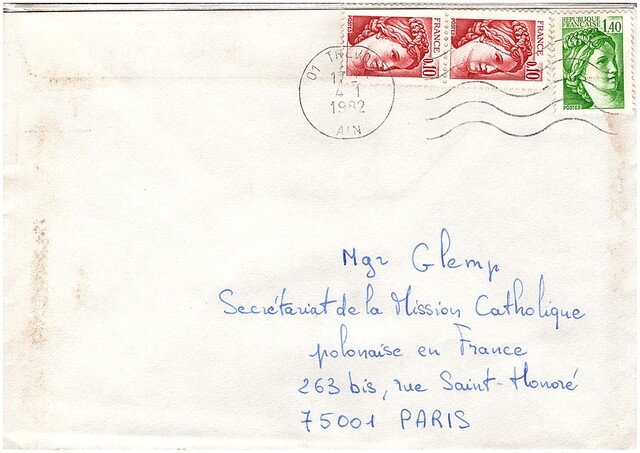 REPUBLIQUE
FRANÇAISE
1,40
POSTES
FRANCE
0,10
POSTES
FRANCE
0,10
POSTES
17
4-1
1982
AIN
Mgr Glemp
Secrétariat de la Mission Catholique
polonaise en France
263 bis, rue Saint-Honoré
75001 PARIS